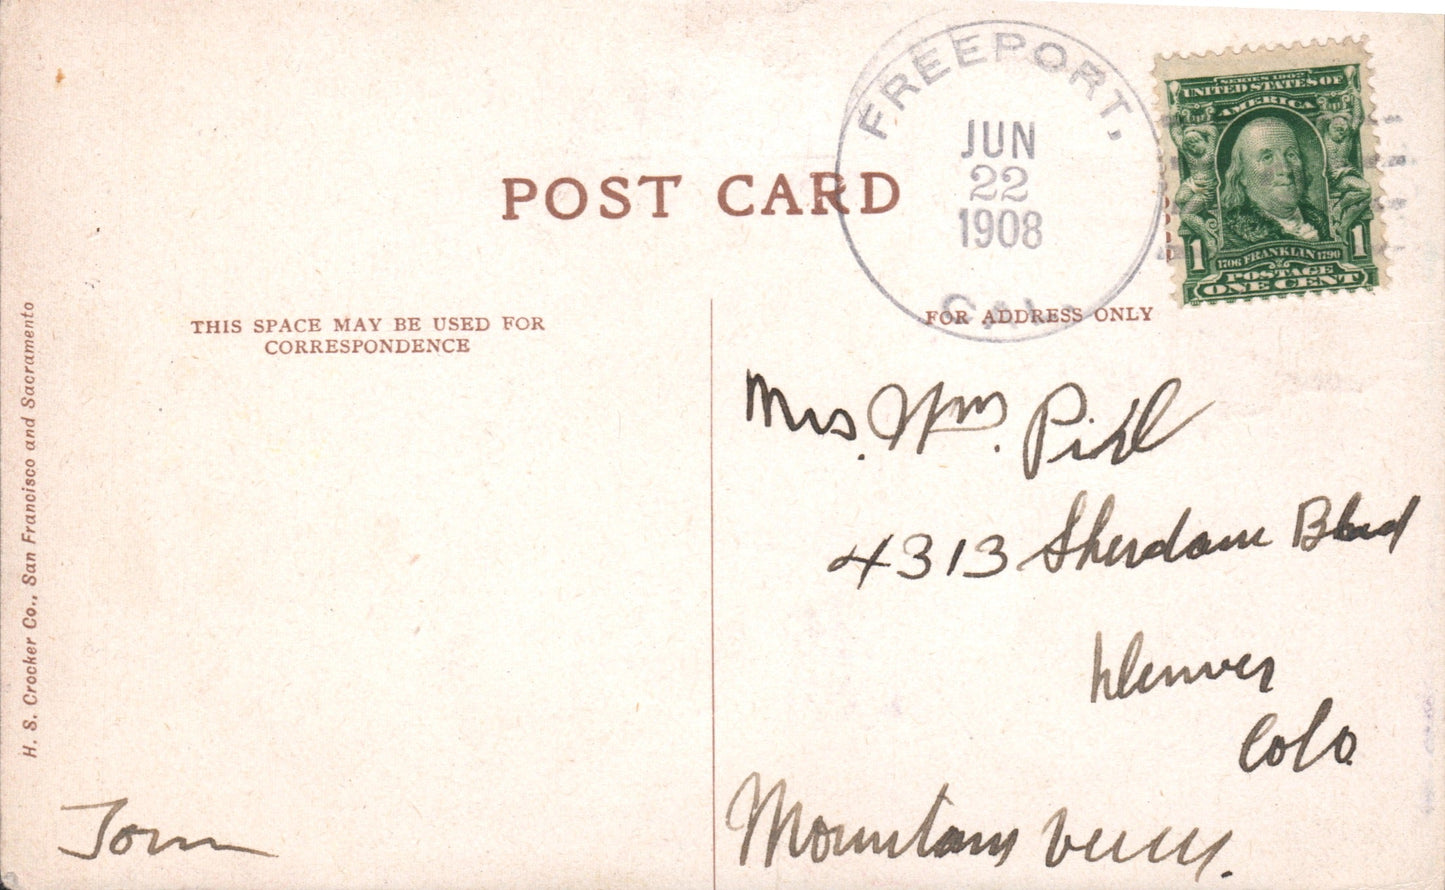 POST CARD
THIS SPACE MAY BE USED FOR
CORRESPONDENCE
FOR ADDRESS ONLY
FREEPORT,
JUN
22
1908
CAL.
SERIES 1902
UNITED STATES OF
AMERICA
1 1
1706 FRANKLIN 1790
POSTAGE
ONE CENT
Mrs. Wm.
4313 Sherdann Blvd
Denver
Colo.
Mountain
Tom
H. S. Crocker Co., San Francisco and Sacramento